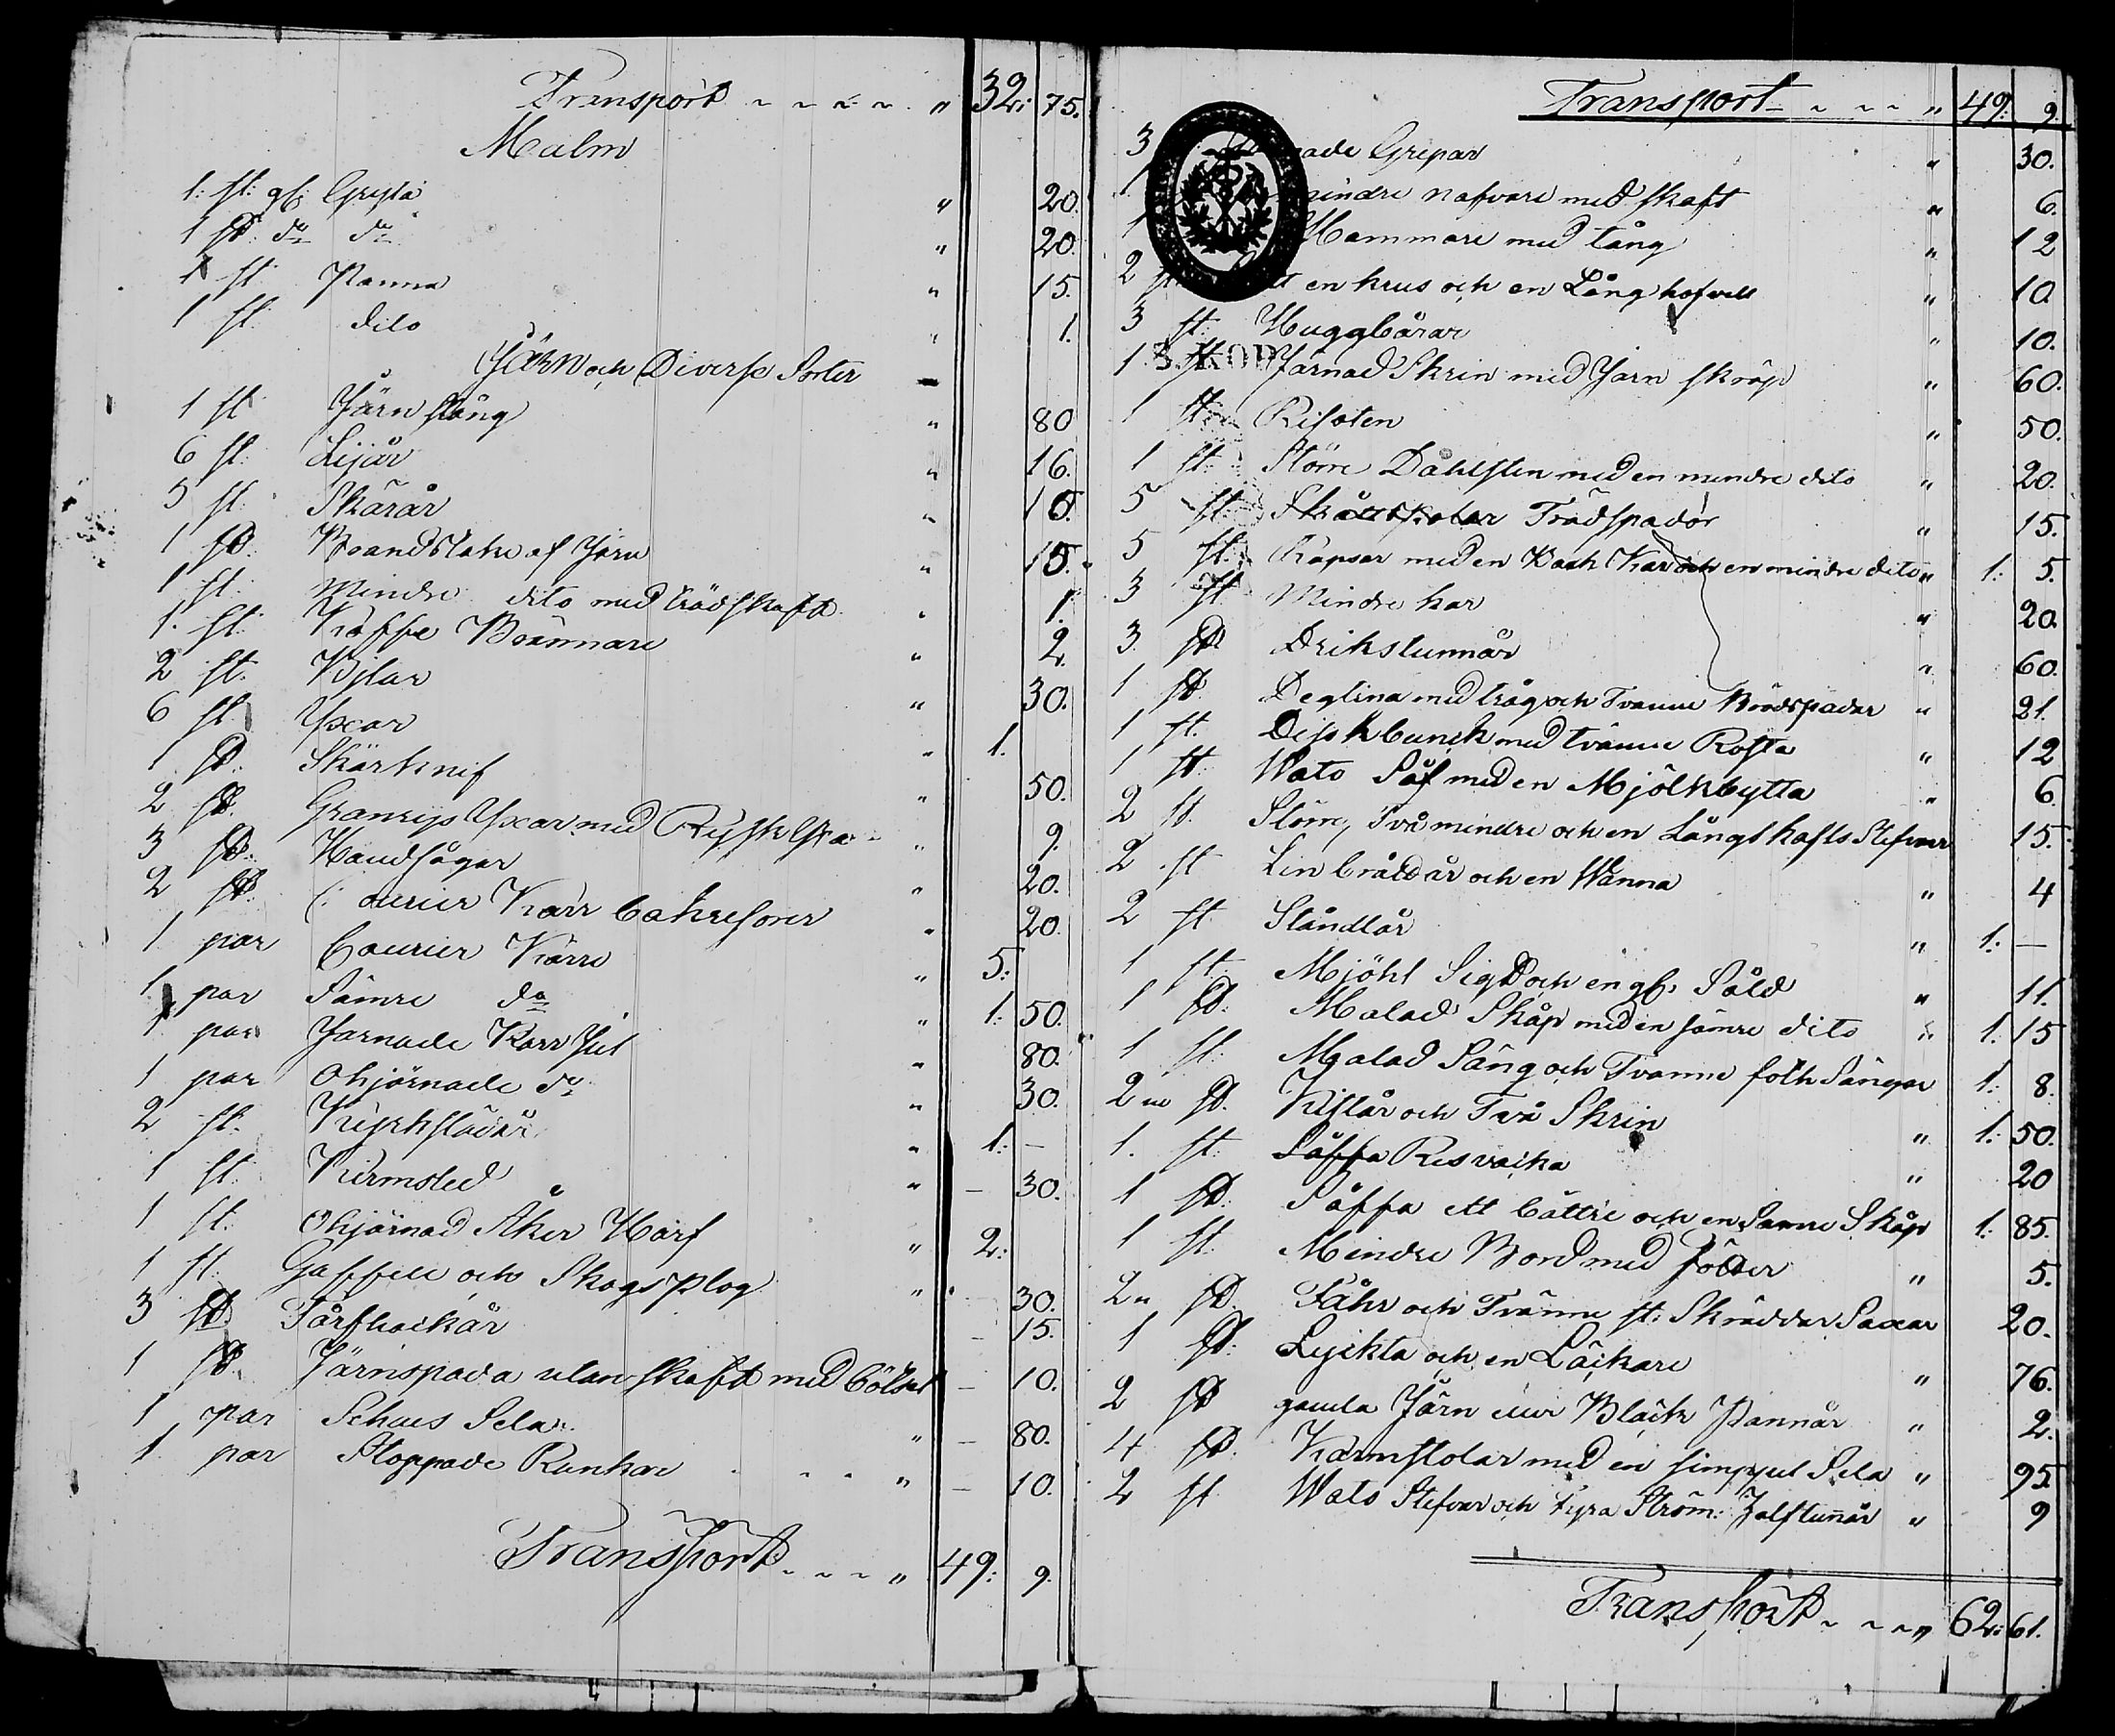 Transport " 32: 75.
Malm
1: st: gl: Gryta " 20.
1 st: do do " 20
1 st Panna " 15.
1 st: dito " 1.
Järn och Diverse Sorter
1 st Järn stång " 80
6 st: Lijår " 16.
5 st: Skärår " 10.
1 st: Brandstake af Järn " 15.
1 st: Mindre dito med trädskaft " 1.
1. st: Kaffe Brännare " 2.
2 st. Bilar " 30.
6 st Yxar " 1.
1 st: Skärknif " 50.
2 st. Granrijs Yxar med Rysk Yxa " 9.
3 st: Handsågar " 20.
2 st: Kärr " 20
1 par Courier Kärre " 5:
1. par Sämre do " 1: 50.
1 par Jarnade Karr Jul " 80.
1 par Ohjärnade do " 30.
2 st. Kyrkslädår " 1: –
1 st: Kirmsled " – 30.
1 st: Ohjärnad Åker Harf " 2:
1 st. Gaffell och Skogs plog " 30.
3 st. Tårfhackår – 15.
1 st. Järnspada utan skaft med – 10.
1 par Schaes Sela " – 80.
1. par Stoppade Rankar " – 10.
Transport " 49: 9.
Transport " 49: 9.
3 Grepar " 30.
1 mindre nafvare med skaft " 6.
1 Hammare med tång " 12
2 st en krus och en Lång hofvell " 10
3 st: Huggbårar " 10.
1 st Järnad Skrin med Jarn skråp " 60.
1 st: Rifsten " 50.
1 st: Större Dåhlsten med en mindre dito " 20.
5 st: Trädspador " 15.
5 st: Kapsar med en Back Kar och en mindre dito " 1: 5.
3 st Mindre kar " 20.
3. st Drikstunnår " 60.
1 st Degtina med tråg och Tvänne Brödspadar " 21.
1 st. Disk bunck med tvänne Rosta " 12
1 st: Wato Såf med en Mjölkbytta " 6.
2 st. Större, Två mindre och en Långskafts Stefvar 15.
2 st Lin bråddår och en Wanna " 4
2 st Ståndlår " 1: –
1 st: Mjöhl Sigt och en gl: Såld " 11.
1 st: Malad Skåp med en sämre dito " 1: 15
1 st: Malad Säng och Tvänne folk Sängar 1: 8.
2 st. Kistår och Två Skrin " 1: 50.
1. st: Såffa " 20
1 st: Såffa ett bättre och en Samre Skåp 1: 85.
1 st: Mindre Bord med fötter " 5.
2 st. Fåhr och Tvänne st: Skräddar Saxar 20.
1 st: Lyckta och en Läckare " 76.
2 st gamla Järn Bläck Pannår " 2.
4 st. Karmstolar med en simppel Sela " 95.
2 st Wato Stefvar och Fyra Ström: Halftunnår " 9
Transport " 62: 61.